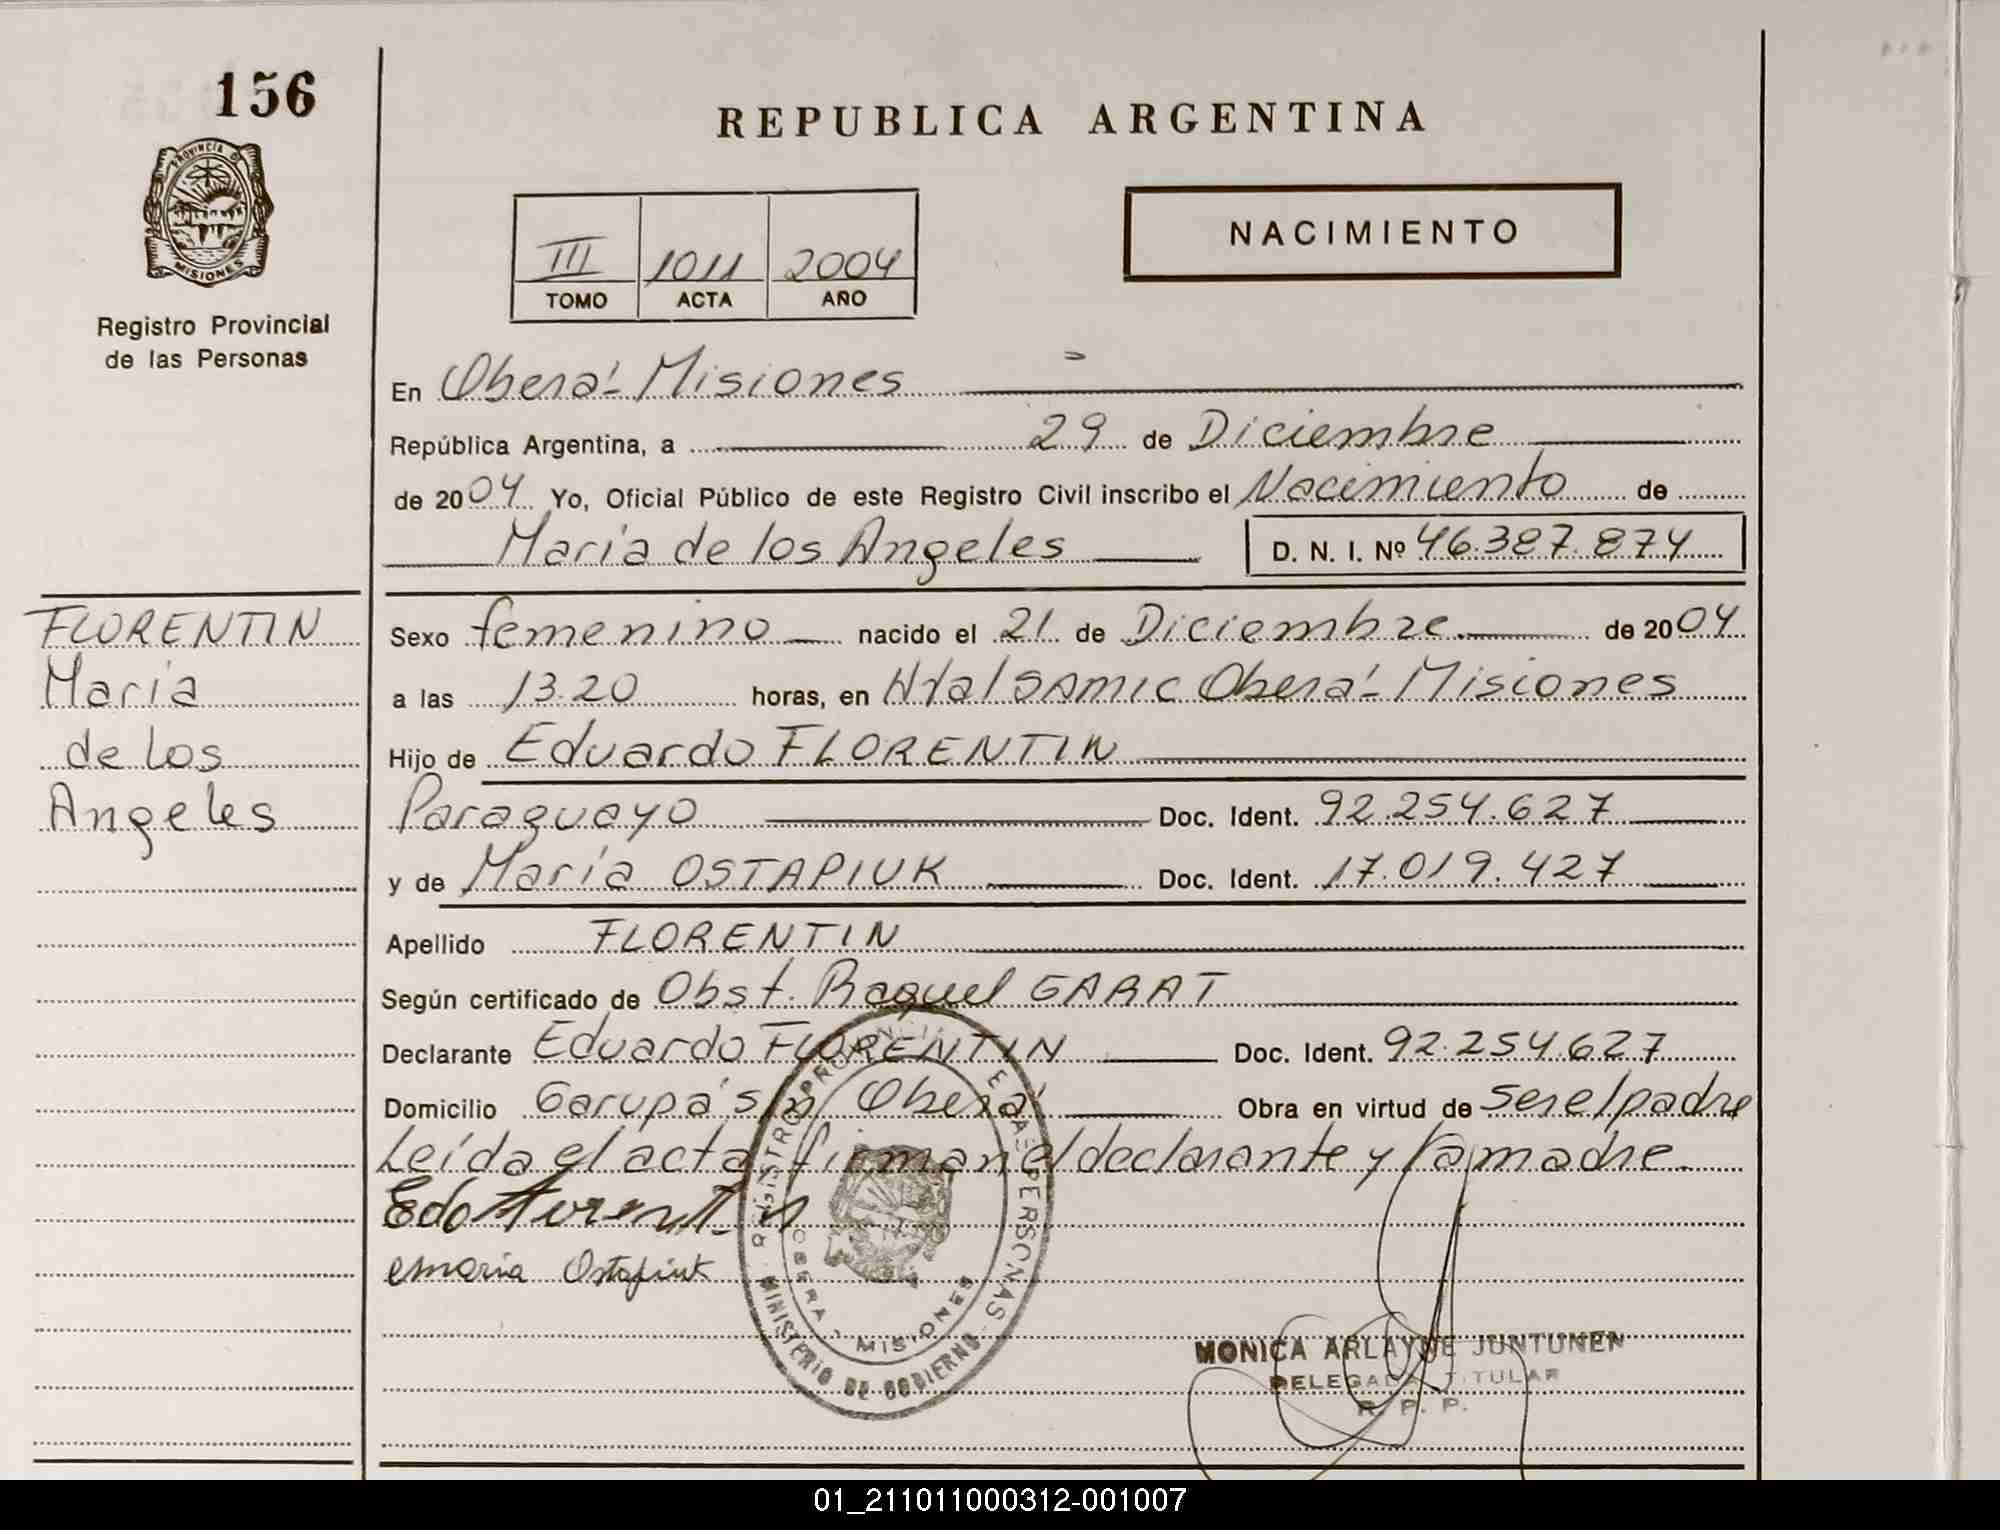 156
PROVINCIA D
MISIONES
Registro Provincial
de las Personas
REPUBLICA ARGENTINA
III 1011 2004
TOMO ACTA AÑO
NACIMIENTO
En Oberá - Misiones
República Argentina, a 29 de Diciembre
de 2004 Yo, Oficial Público de este Registro Civil inscribo el Nacimiento de
María de los Angeles D. N. I. Nº 46.387.874
FLORENTIN
María
de los
Angeles
Sexo femenino nacido el 21 de Diciembre de 2004
a las 13.20 horas, en Htal SAMIC Oberá - Misiones
Hijo de Eduardo FLORENTIN
Paraguayo Doc. Ident. 92.254.627
y de María OSTAPIUK Doc. Ident. 17.019.427
Apellido FLORENTIN
Según certificado de Obst. Raquel GARAT
Declarante Eduardo FLORENTIN Doc. Ident. 92.254.627
Domicilio Garupá s/n Oberá Obra en virtud de ser el padre
Leída el acta firman el declarante y la madre.
Edo Florentin
Maria Ostapiuk
REGISTRO PROVINCIAL DE LAS PERSONAS
OBERA - MISIONES
MINISTERIO DE GOBIERNO
MONICA ARLAYNE JUNTUNEN
DELEGADA TITULAR
R. P. P.
01_211011000312-001007